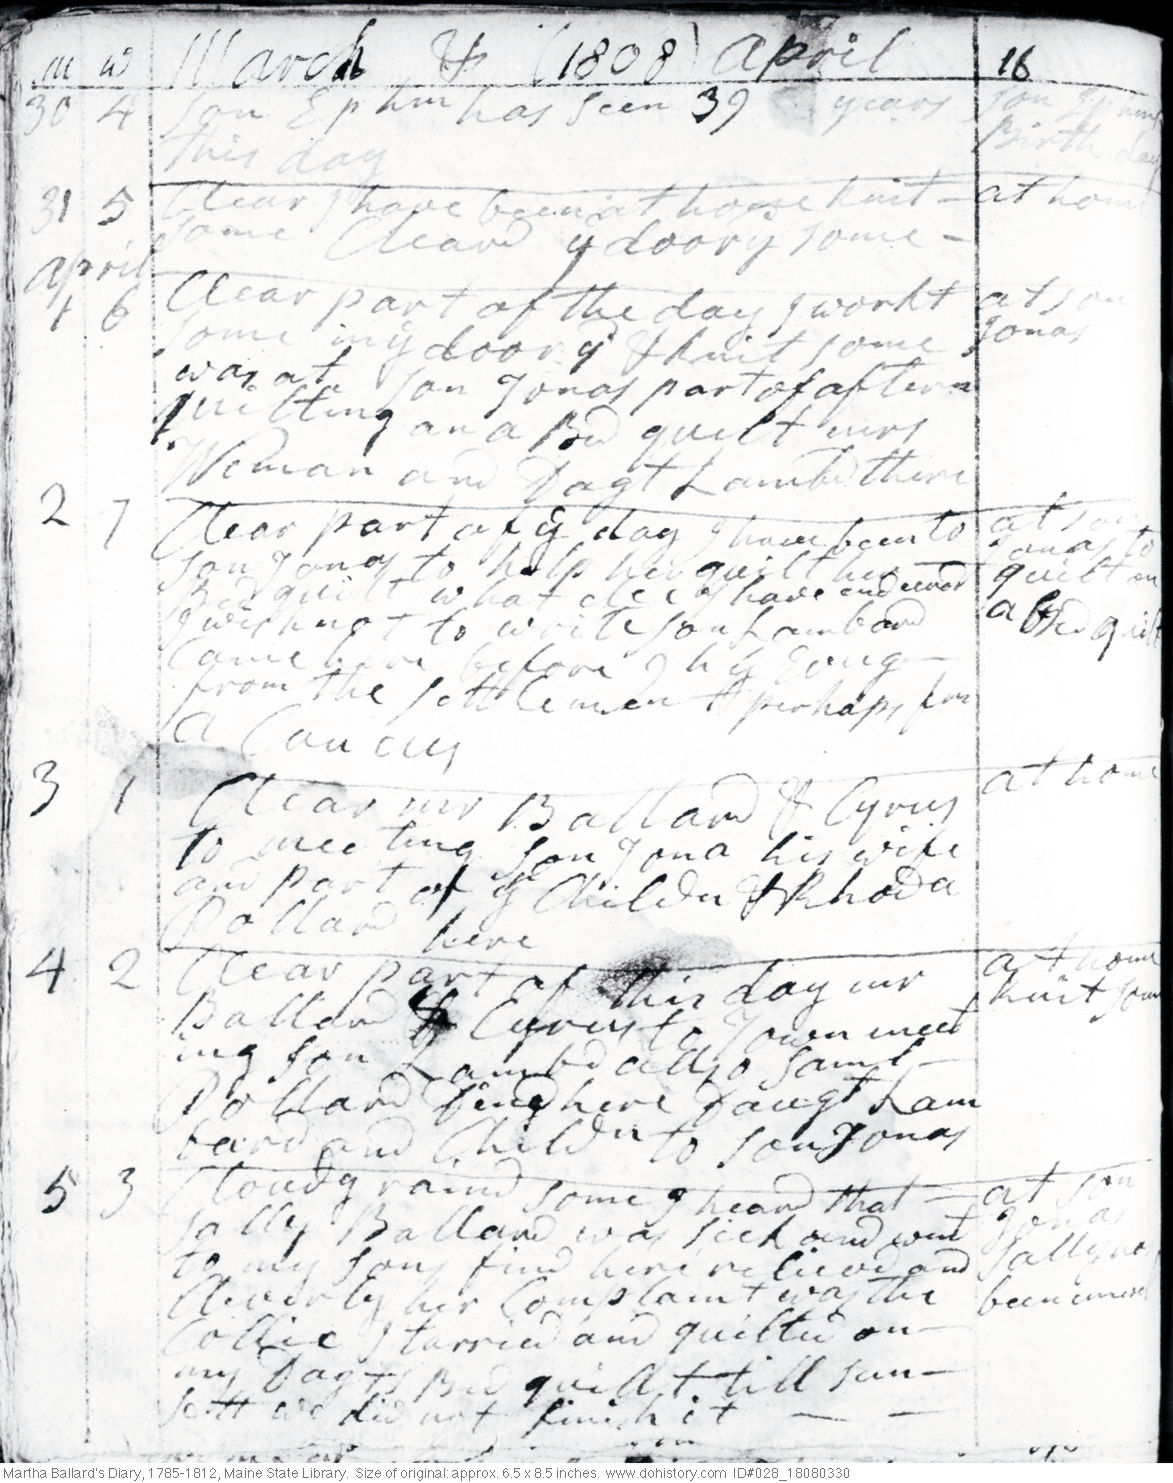 m w March & (1808) april 18
30 4 son Ephm has seen 39 years son Ephms
this day Birth day
31 5 Clear I have been at home knit – at home
some Cleard ye doory some –
april
1 6 Clear part of the day I workt at son
some in ye doory & knit some Jonas
was at son Jonas part of aftern
quilting an a Bed quilt mrs
Weman and Dagt Lambd there
2 7 Clear part of ye day I have been to at son
son Jonas to help her quilt her Jonas to
Bed quilt what elce I have endevord quilt on
I wish not to write son Lambard a Bed quilt
Came here before I his going –
from the settlement perhaps for
a Caucus
3 1 Clear mr Ballard & Cyrus at home
to meeting son Jona his wife
and part of ye Childn & Rhoda
Pollard here
4 2 Clear part of this day mr at home
Ballard & Cyrus to Town meet knit some
ing son Lambd allso saml –
Pollard dined here Daugt Lam
bard and Childn to son Jonas
5 3 Cloudy raind some I heard that – at son
sally Ballard was sick and went Jonas
to my son, find here relievd and sally
Cleverly her Complaint was the been
Collic I tarried and quilted on –
my Dagts Bed quillt till sun –
sett we did not finish it – –
Martha Ballard's Diary, 1785-1812, Maine State Library. Size of original: approx. 6.5 x 8.5 inches. www.dohistory.com ID#028_18080330